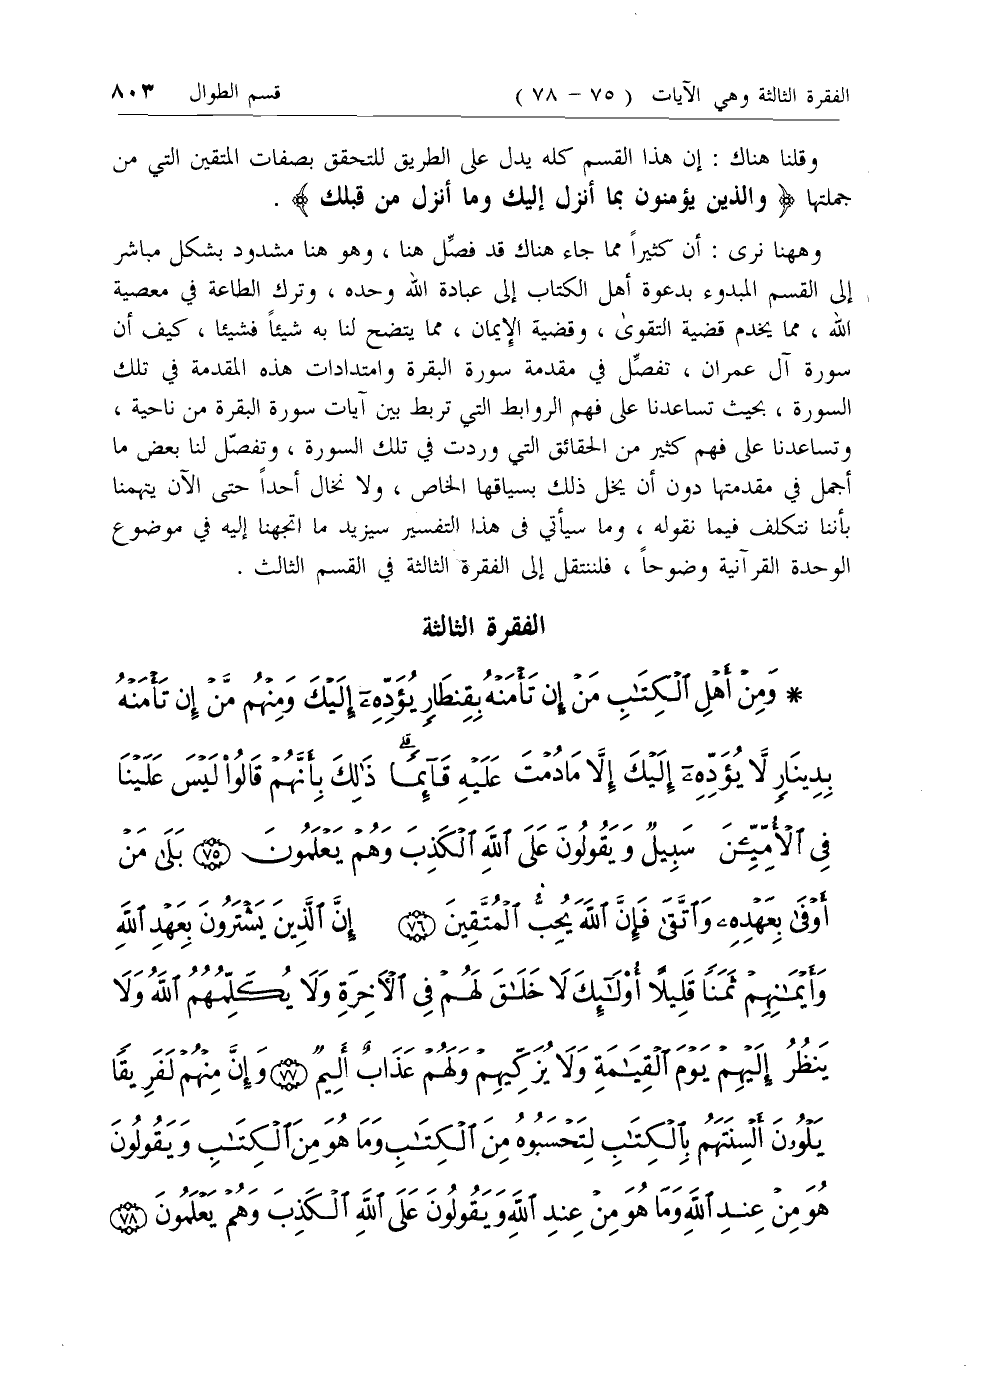 الفقرة الثالثة وهي الآيات ( ٧٥ – ٧٨ ) قسم الطوال ٨٠٣
وقلنا هناك : إن هذا القسم كله يدل على الطريق للتحقق بصفات المتقين التي من
جملتها ﴿ والذين يؤمنون بما أنزل إليك وما أنزل من قبلك ﴾ .
وههنا نرى : أن كثيراً مما جاء هناك قد فصِّل هنا ، وهو هنا مشدود بشكل مباشر
إلى القسم المبدوء بدعوة أهل الكتاب إلى عبادة الله وحده ، وترك الطاعة في معصية
الله ، مما يخدم قضية التقوىٰ ، وقضية الإيمان ، مما يتضح لنا به شيئاً فشيئا ، كيف أن
سورة آل عمران ، تفصِّل في مقدمة سورة البقرة وامتدادات هذه المقدمة في تلك
السورة ، بحيث تساعدنا على فهم الروابط التي تربط بين آيات سورة البقرة من ناحية ،
وتساعدنا على فهم كثير من الحقائق التي وردت في تلك السورة ، وتفصّل لنا بعض ما
أجمل في مقدمتها دون أن يخل ذلك بسياقها الخاص ، ولا نخال أحداً حتى الآن يتهمنا
بأننا نتكلف فيما نقوله ، وما سيأتي فى هذا التفسير سيزيد ما اتجهنا إليه في موضوع
الوحدة القرآنية وضوحاً ، فلننتقل إلى الفقرة الثالثة في القسم الثالث .
الفقرة الثالثة
* وَمِنْ أَهْلِ ٱلْكِتَٰبِ مَنْ إِن تَأْمَنْهُ بِقِنطَارٍ يُؤَدِّهِۦٓ إِلَيْكَ وَمِنْهُم مَّنْ إِن تَأْمَنْهُ
بِدِينَارٍ لَّا يُؤَدِّهِۦٓ إِلَيْكَ إِلَّا مَا دُمْتَ عَلَيْهِ قَآئِمًا ۗ ذَٰلِكَ بِأَنَّهُمْ قَالُوا۟ لَيْسَ عَلَيْنَا
فِى ٱلْأُمِّيِّـۧنَ سَبِيلٌ وَيَقُولُونَ عَلَى ٱللَّهِ ٱلْكَذِبَ وَهُمْ يَعْلَمُونَ ٧٥ بَلَىٰ مَنْ
أَوْفَىٰ بِعَهْدِهِۦ وَٱتَّقَىٰ فَإِنَّ ٱللَّهَ يُحِبُّ ٱلْمُتَّقِينَ ٧٦ إِنَّ ٱلَّذِينَ يَشْتَرُونَ بِعَهْدِ ٱللَّهِ
وَأَيْمَٰنِهِمْ ثَمَنًا قَلِيلًا أُو۟لَٰٓئِكَ لَا خَلَٰقَ لَهُمْ فِى ٱلْـَٔاخِرَةِ وَلَا يُكَلِّمُهُمُ ٱللَّهُ وَلَا
يَنظُرُ إِلَيْهِمْ يَوْمَ ٱلْقِيَٰمَةِ وَلَا يُزَكِّيهِمْ وَلَهُمْ عَذَابٌ أَلِيمٌ ٧٧ وَإِنَّ مِنْهُمْ لَفَرِيقًا
يَلْوُۥنَ أَلْسِنَتَهُم بِٱلْكِتَٰبِ لِتَحْسَبُوهُ مِنَ ٱلْكِتَٰبِ وَمَا هُوَ مِنَ ٱلْكِتَٰبِ وَيَقُولُونَ
هُوَ مِنْ عِندِ ٱللَّهِ وَمَا هُوَ مِنْ عِندِ ٱللَّهِ وَيَقُولُونَ عَلَى ٱللَّهِ ٱلْكَذِبَ وَهُمْ يَعْلَمُونَ ٧٨